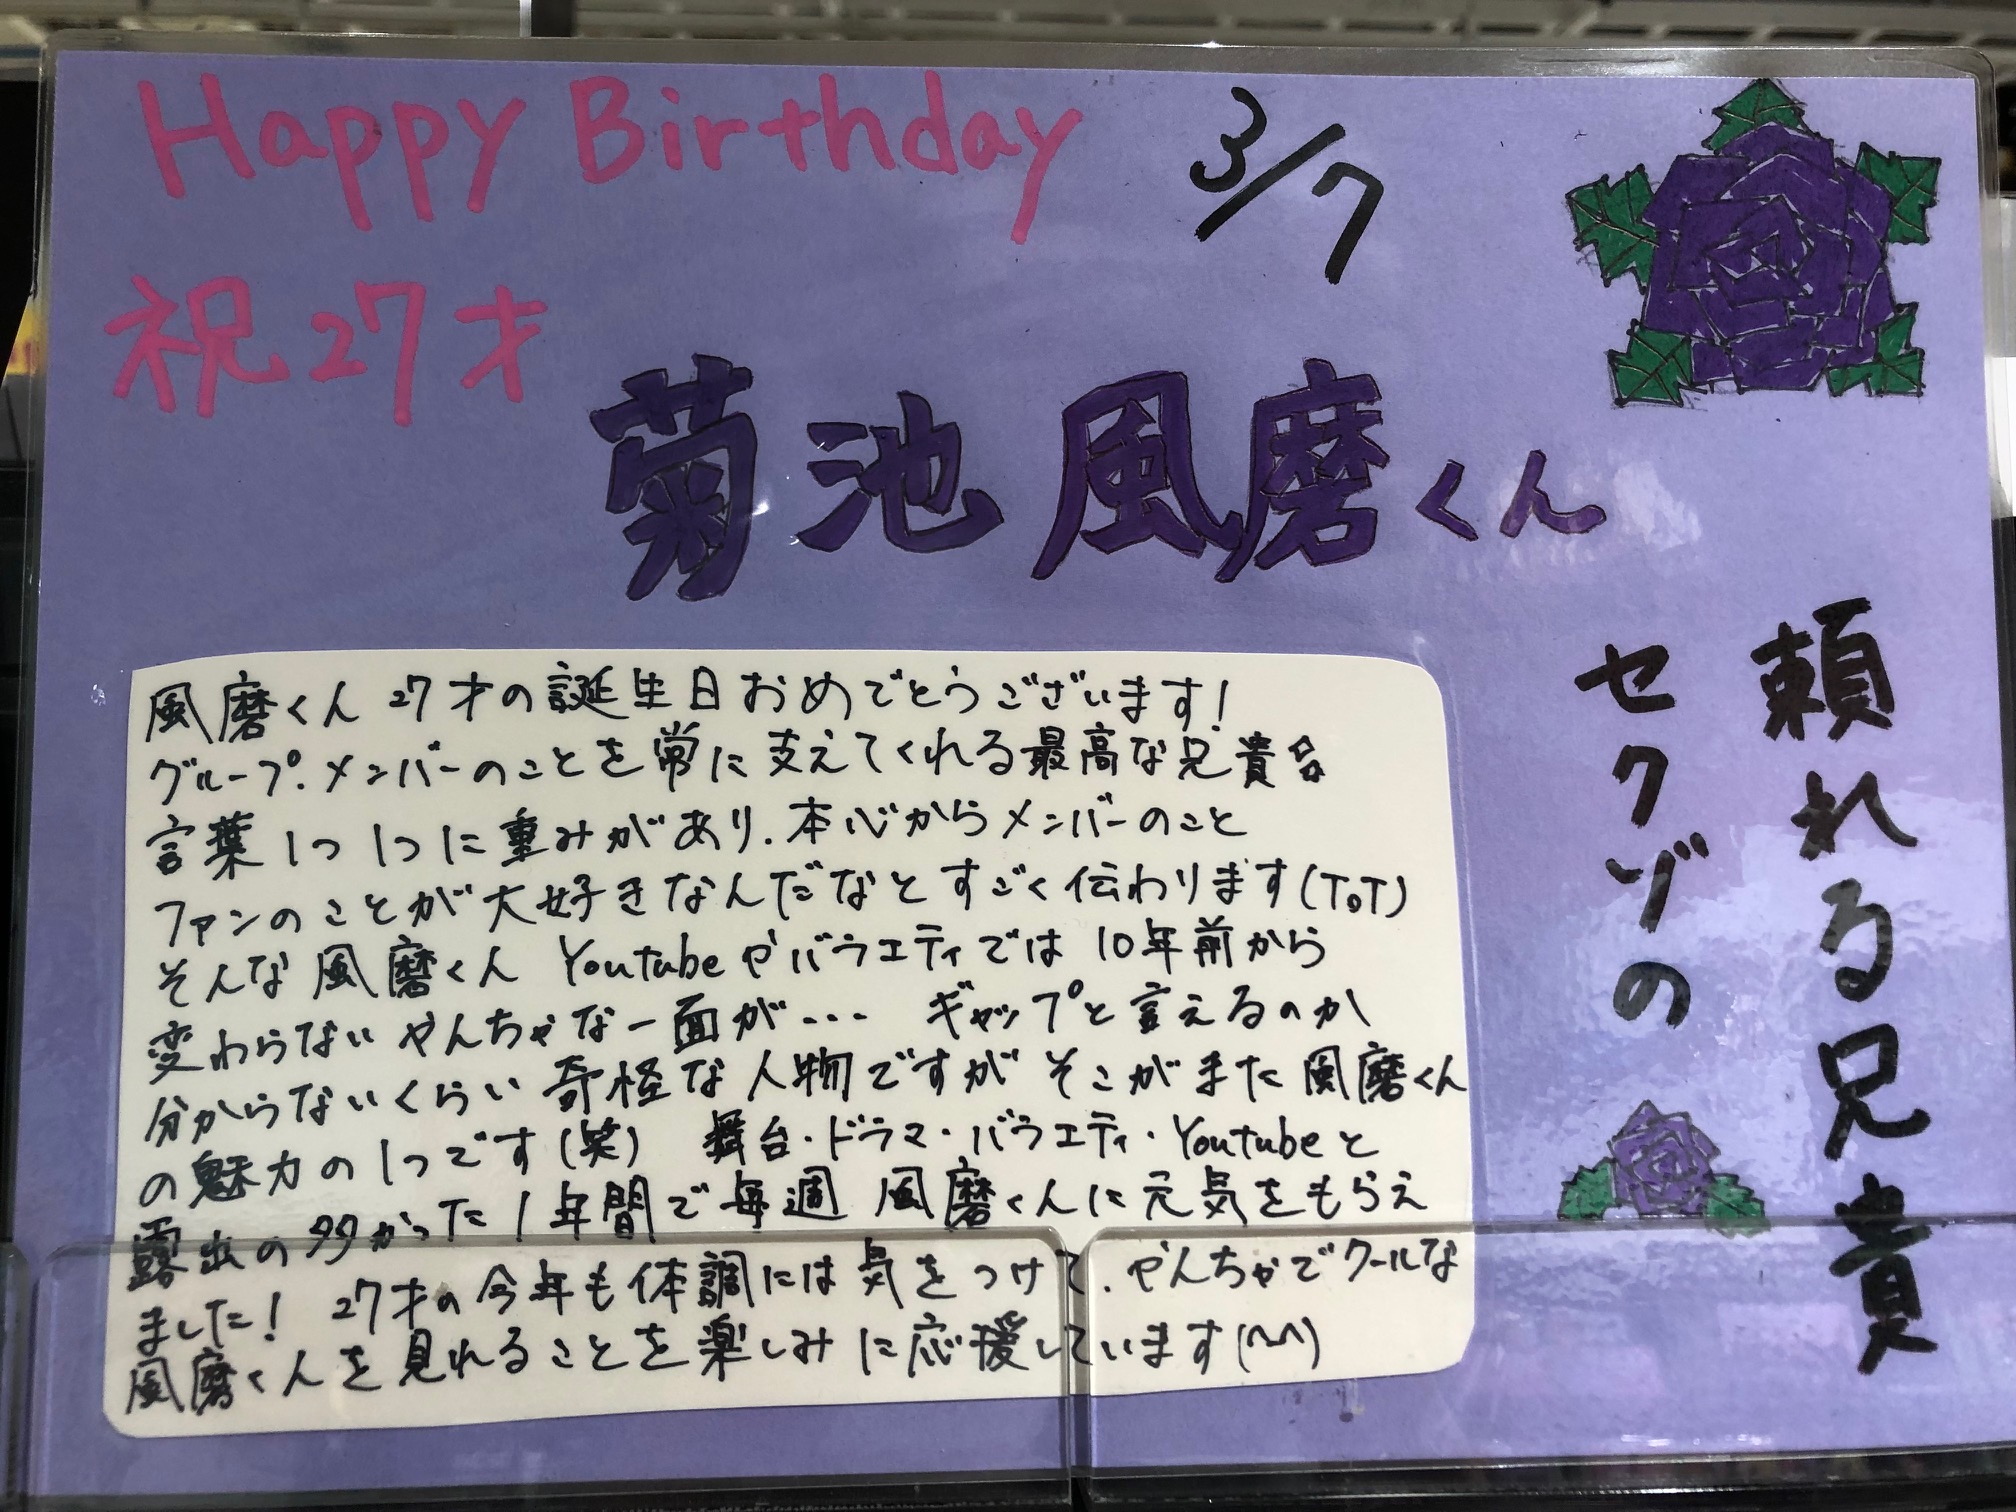 Happy Birthday 3/7
祝27才
菊池風磨くん
頼れる兄貴
セクゾの
風磨くん 27才の誕生日おめでとうございます!
グループ.メンバーのことを常に支えてくれる最高な兄貴
言葉1つ1つに重みがあり、本心からメンバーのこと
ファンのことが大好きなんだなとすごく伝わります(ToT)
そんな風磨くん Youtubeやバラエティでは10年前から
変わらないやんちゃな一面が... ギャップと言えるのか
分からないくらい奇怪な人物ですがそこがまた風磨くん
の魅力の1つです(笑) 舞台・ドラマ・バラエティ・Youtubeと
露出の多かった1年間で毎週風磨くんに元気をもらえ
ました! 27才の今年も体調には気をつけて、やんちゃでクールな
風磨くんを見れることを楽しみに応援しています(^^)